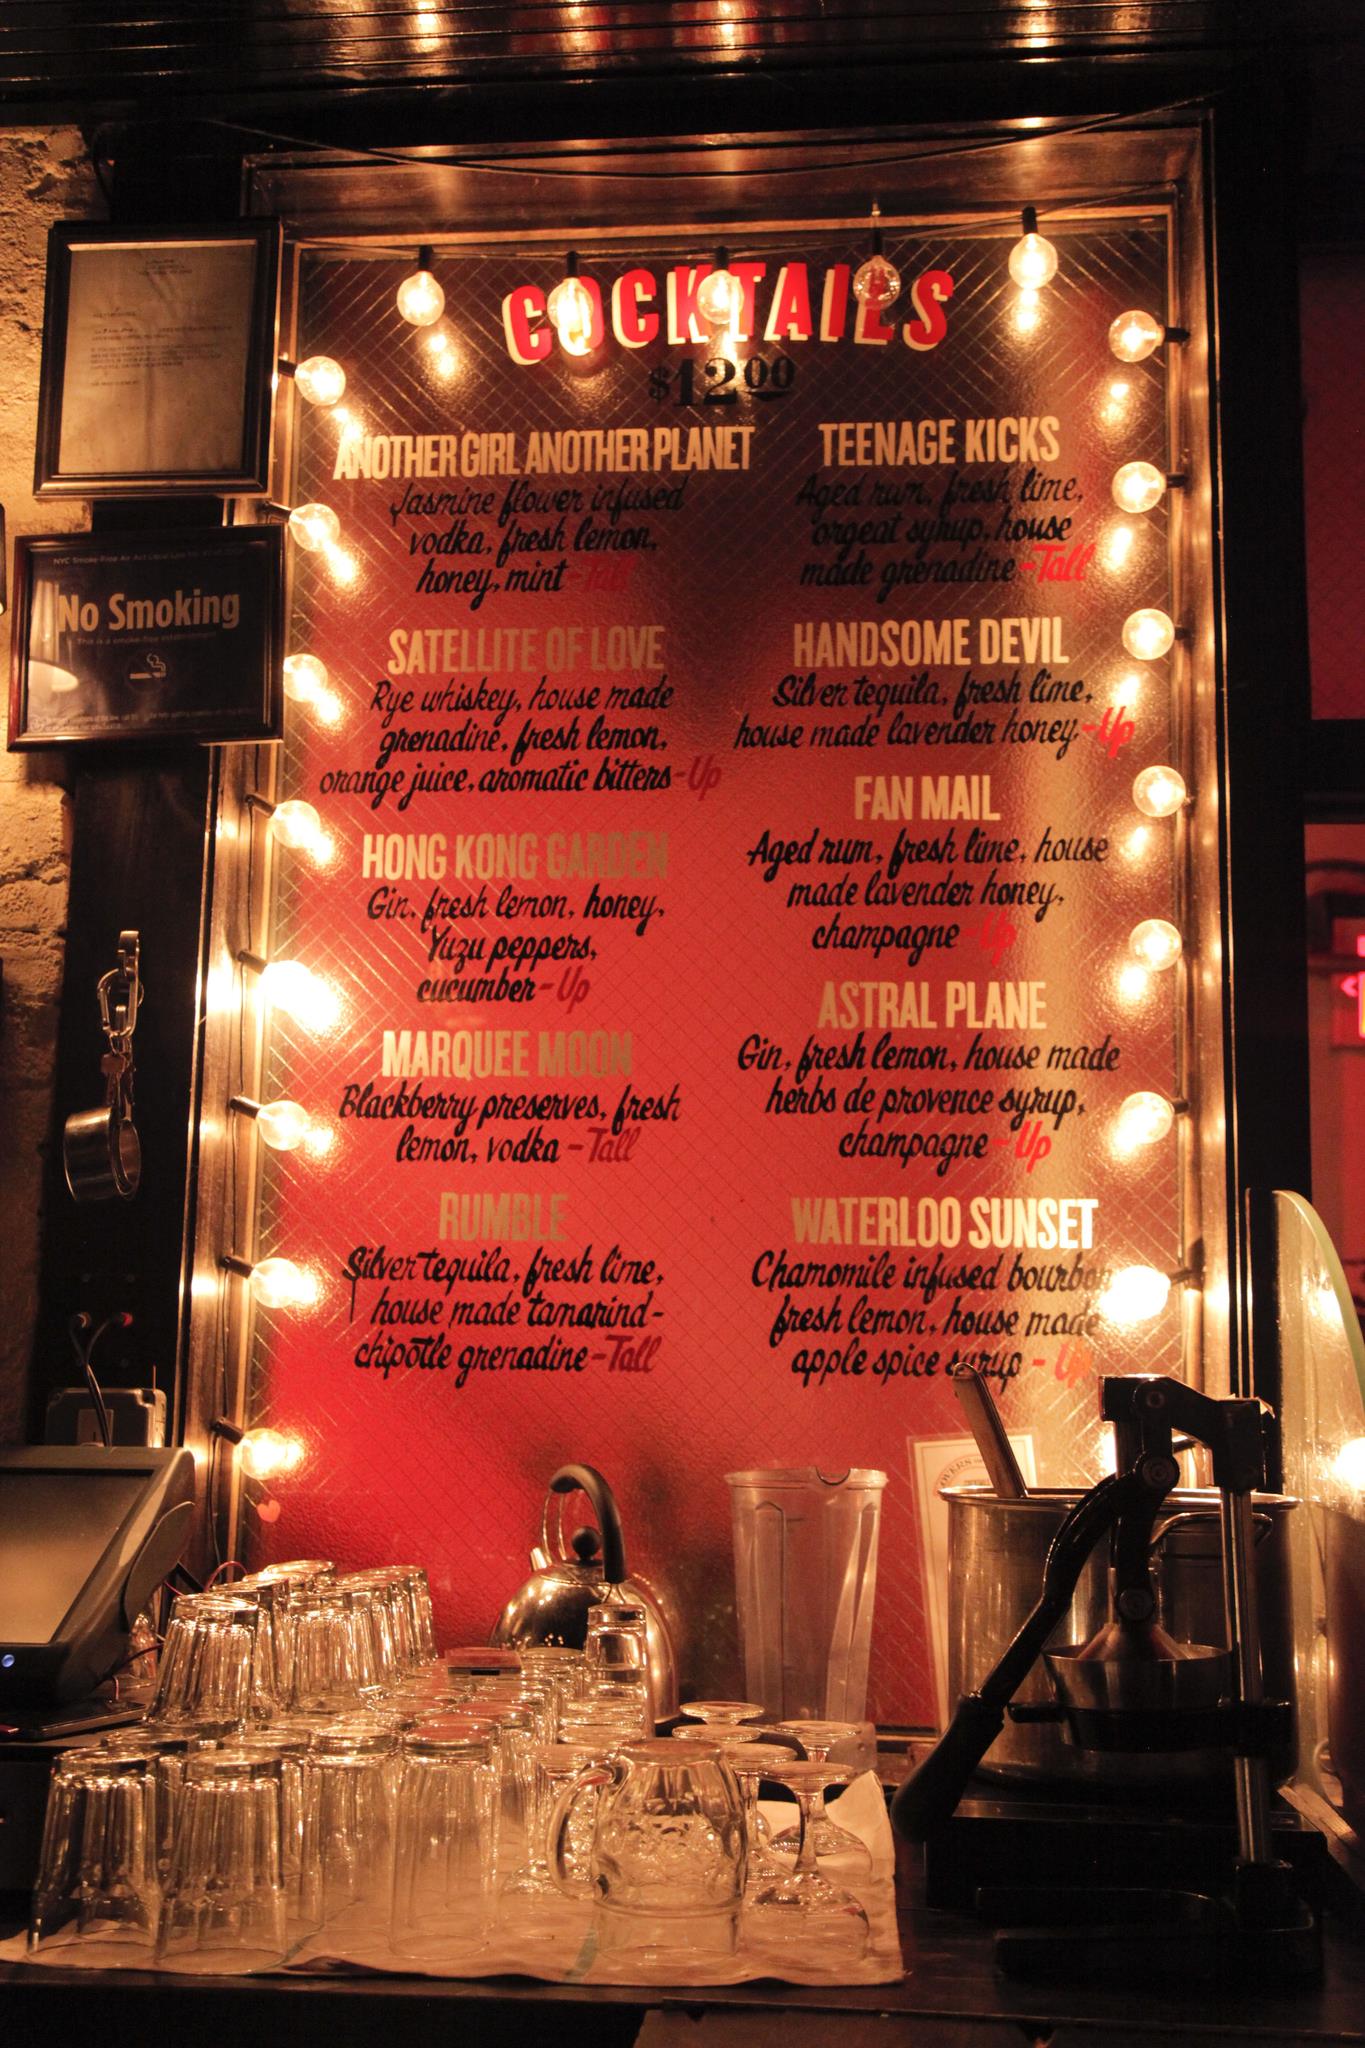 COCKTAILS
$12.00
ANOTHER GIRL ANOTHER PLANET
Jasmine flower infused
vodka, fresh lemon,
honey, mint - Tall
SATELLITE OF LOVE
Rye whiskey, house made
grenadine, fresh lemon,
orange juice, aromatic bitters - Up
HONG KONG GARDEN
Gin, fresh lemon, honey,
Yuzu peppers,
cucumber - Up
MARQUEE MOON
Blackberry preserves, fresh
lemon, vodka - Tall
RUMBLE
Silver tequila, fresh lime,
house made tamarind-
chipotle grenadine - Tall
TEENAGE KICKS
Aged rum, fresh lime,
orgeat syrup, house
made grenadine - Tall
HANDSOME DEVIL
Silver tequila, fresh lime,
house made lavender honey - Up
FAN MAIL
Aged rum, fresh lime, house
made lavender honey,
champagne - Up
ASTRAL PLANE
Gin, fresh lemon, house made
herbs de provence syrup,
champagne - Up
WATERLOO SUNSET
Chamomile infused bourbon
fresh lemon, house made
apple spice syrup - Up
NYC Smoke-Free Air Act
No Smoking
This is a smoke-free establishment